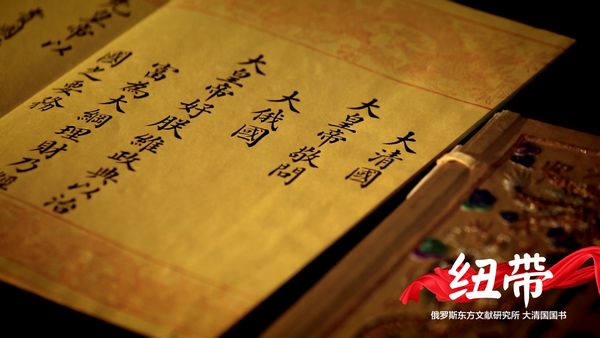 大清國
大皇帝敬問
大俄國
大皇帝好朕維政典以治
富為大綱理財乃
國之要務
皇帝以
纽带
俄罗斯东方文献研究所 大清国国书